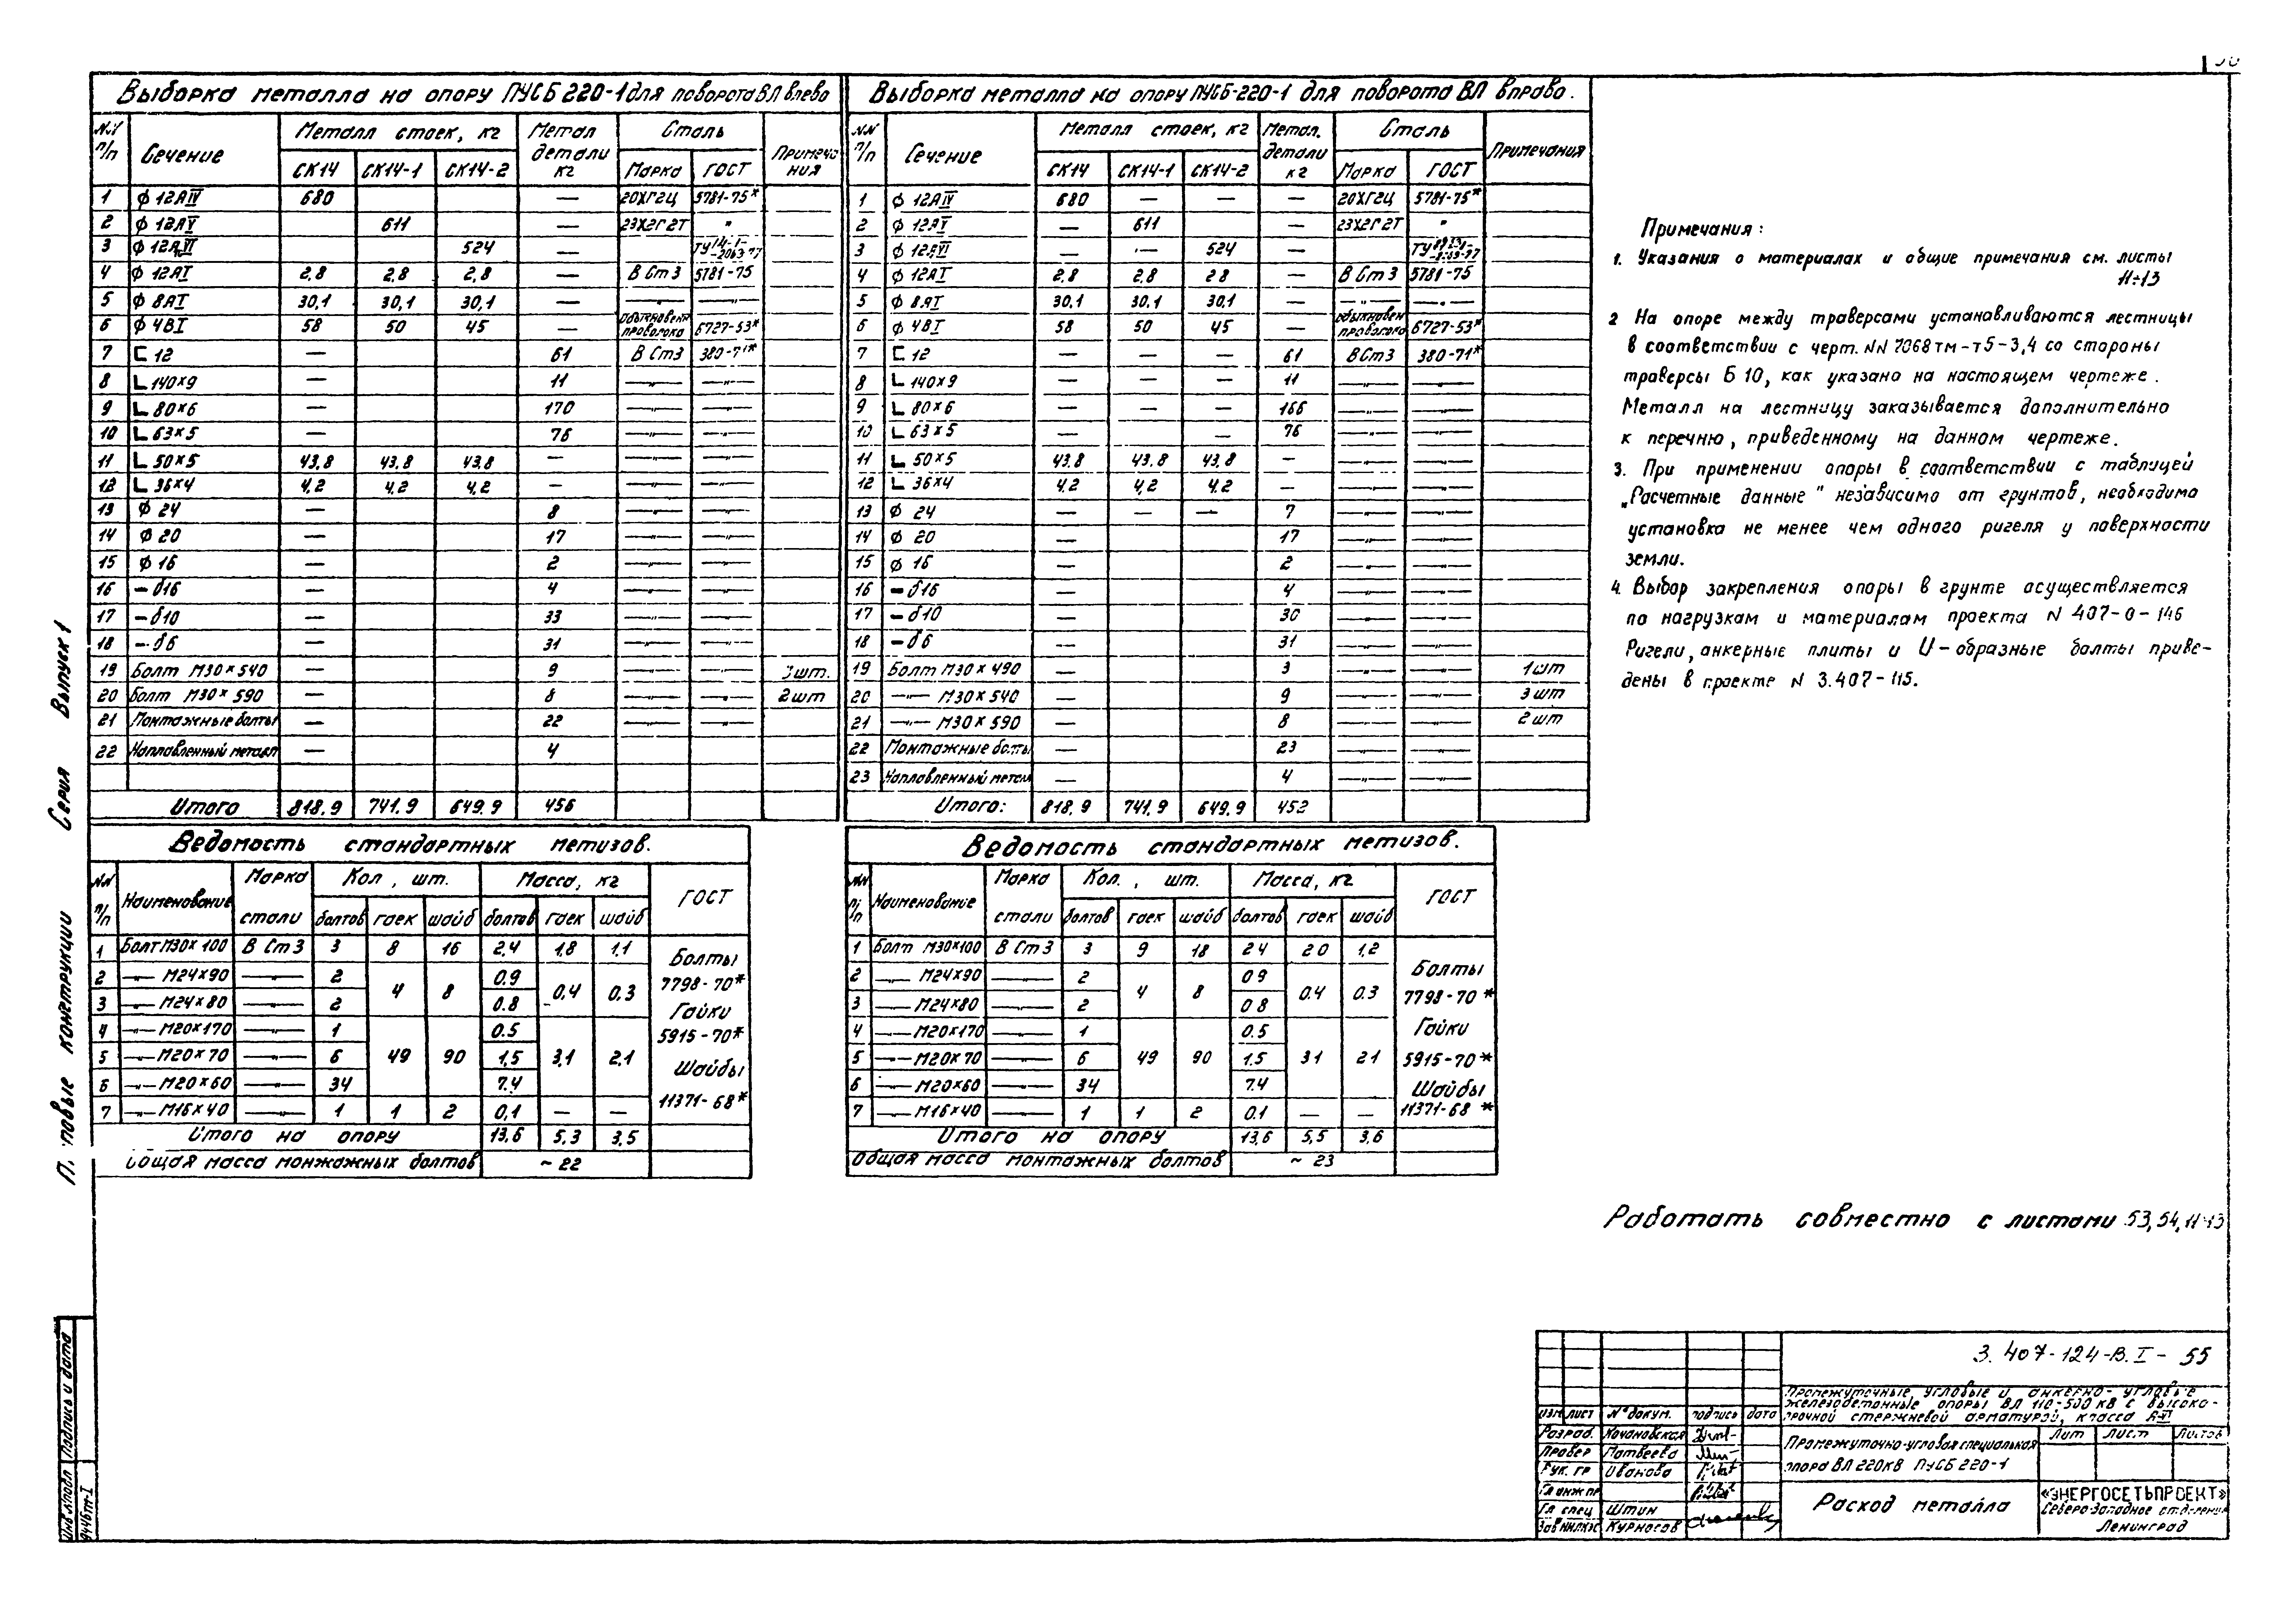 Выборка металла на опору ПУСБ 220-1 для поворота ВЛ влево
NN п/п Сечение Металл стоек, кг Метал детали кг Сталь Примечания
СК14 СК14-1 СК14-2 Марка ГОСТ
1 ϕ 12АIV 680 — 20ХГ2Ц 5781-75*
2 ϕ 12АV 611 — 23Х2Г2Т "
3 ϕ 12АVI 524 — ТУ14-1-2063-77
4 ϕ 12АI 2,8 2,8 2,8 — В Ст 3 5781-75
5 ϕ 8АI 30,1 30,1 30,1 — —"— —"—
6 ϕ 4ВI 58 50 45 — обыкновен проволока 6727-53*
7 ⊏ 12 — 61 В Ст3 380-71*
8 L 140×9 — 11 —"— —"—
9 L 80×6 — 170 —"— —"—
10 L 63×5 — 76 —"— —"—
11 L 50×5 43,8 43,8 43,8 — —"— —"—
12 L 36×4 4,2 4,2 4,2 — —"— —"—
13 ϕ 24 — 8 —"— —"—
14 ϕ 20 — 17 —"— —"—
15 ϕ 16 — 2 —"— —"—
16 – δ16 — 4 —"— —"—
17 – δ10 — 33 —"— —"—
18 – δ6 — 31 —"— —"—
19 Болт М30×540 — 9 —"— —"— 3шт.
20 Болт М30×590 — 8 —"— —"— 2шт
21 Монтажные болты — 22 —"— —"—
22 Наплавленный металл — 4
Итого 818,9 741,9 649,9 456
Выборка металла на опору ПУСБ-220-1 для поворота ВЛ вправо.
NN п/п Сечение Металл стоек, кг Метал. детали кг Сталь Примечания
СК14 СК14-1 СК14-2 Марка ГОСТ
1 ϕ 12АIV 680 — — — 20ХГ2Ц 5781-75*
2 ϕ 12АV — 611 — 23Х2Г2Т "
3 ϕ 12АVI — — 524 —
4 ϕ 12АI 2,8 2,8 2 8 — В Ст 3 5781-75
5 ϕ 8АI 30,1 30,1 30,1 — —"— —"—
6 ϕ 4ВI 58 50 45 — обыкновен проволока 6727-53*
7 ⊏ 12 — — — 61 ВСт3 380-71*
8 L 140×9 — — — 11 —"— —"—
9 L 80×6 — — — 166 —"— —"—
10 L 63×5 — — 76 —"— —"—
11 L 50×5 43.8 43,8 43,8 — —"— —"—
12 L 36×4 4,2 4,2 4,2 — —"— —"—
13 ϕ 24 — — — 7 —"— —"—
14 ϕ 20 — 17 —"— —"—
15 ϕ 16 — 2 —"— —"—
16 – δ16 — 4 —"— —"—
17 – δ10 — 30 —"— —"—
18 – δ6 — 31 —"— —"—
19 Болт М30×490 — 3 —"— —"— 1шт
20 —"— М30×540 — 9 —"— —"— 3 шт
21 —"— М30×590 — 8 —"— —"— 2 шт
22 Монтажные болты — 23 —"— —"—
23 Наплавленный метал — 4 —"— —"—
Итого: 818,9 741,9 649,9 452
Примечания:
1. Указания о материалах и общие примечания см. листы
11÷13
2 На опоре между траверсами устанавливаются лестницы
в соответствии с черт. NN 7068тм-т5-3,4 со стороны
траверсы Б 10, как указано на настоящем чертеже.
Металл на лестницу заказывается дополнительно
к перечню, приведенному на данном чертеже.
3. При применении опоры в соответствии с таблицей
„Расчетные данные" независимо от грунтов, необходима
установка не менее чем одного ригеля у поверхности
земли.
4. Выбор закрепления опоры в грунте осуществляется
по нагрузкам и материалам проекта N 407-0-146
Ригели, анкерные плиты и U-образные болты приве-
дены в проекте N 3.407-115.
Ведомость стандартных метизов.
NN п/п Наименование Марка стали Кол, шт. Масса, кг ГОСТ
болтов гаек шайб болтов гаек шайб
1 Болт М30×100 В Ст 3 3 8 16 2,4 1,8 1,1
2 —"— М24×90 —"— 2 4 8 0.9 0.4 0.3
3 —"— М24×80 —"— 2 0.8
4 —"— М20×170 —"— 1 0.5
5 —"— М20×70 —"— 6 49 90 1,5 3,1 2,1
6 —"— М20×60 —"— 34 7.4
7 —"— М16×40 —"— 1 1 2 0,1 — —
Болты
7798-70*
Гайки
5915-70*
Шайбы
11371-68*
Итого на опору 13,6 5,3 3,5
Общая масса монжажных болтов ~ 22
Ведомость стандартных метизов.
NN п/п Наименование Марка стали Кол., шт. Масса, кг ГОСТ
болтов гаек шайб болтов гаек шайб
1 Болт М30×100 В Ст 3 3 9 18 2 4 2 0 1,2
2 —"— М24×90 —"— 2 4 8 0 9 0.4 0.3
3 —"— М24×80 —"— 2 0 8
4 —"— М20×170 —"— 1 0.5
5 —"— М20×70 —"— 6 49 90 1.5 3 1 2 1
6 —"— М20×60 —"— 34 7.4
7 —"— М16×40 —"— 1 1 2 0.1 — —
Болты
7798-70*
Гайки
5915-70*
Шайбы
11371-68*
Итого на опору 13,6 5,5 3,6
Общая масса монтажных болтов ~ 23
Работать совместно с листами 53, 54, 11÷13
Серия Выпуск 1
конструкции
Инв.N подл Подпись и дата
9446тм-I
3.407-124-В.I-55
Промежуточные, угловые и анкерно-угловые
железобетонные опоры ВЛ 110-500 кВ с высоко-
прочной стержневой арматурой, класса А-VI
Изм лист N° докум. подпись дата
Разраб. Кочановская
Провер Матвеева
Рук. гр Иванова
Гл инж пр
Гл спец Штин
Курносов
Промежуточно-угловая специальная
опора ВЛ 220кВ ПУСБ 220-1
Лит Лист Листов
Расход металла
«ЭНЕРГОСЕТЬПРОЕКТ»
Северо-Западное отделение
Ленинград